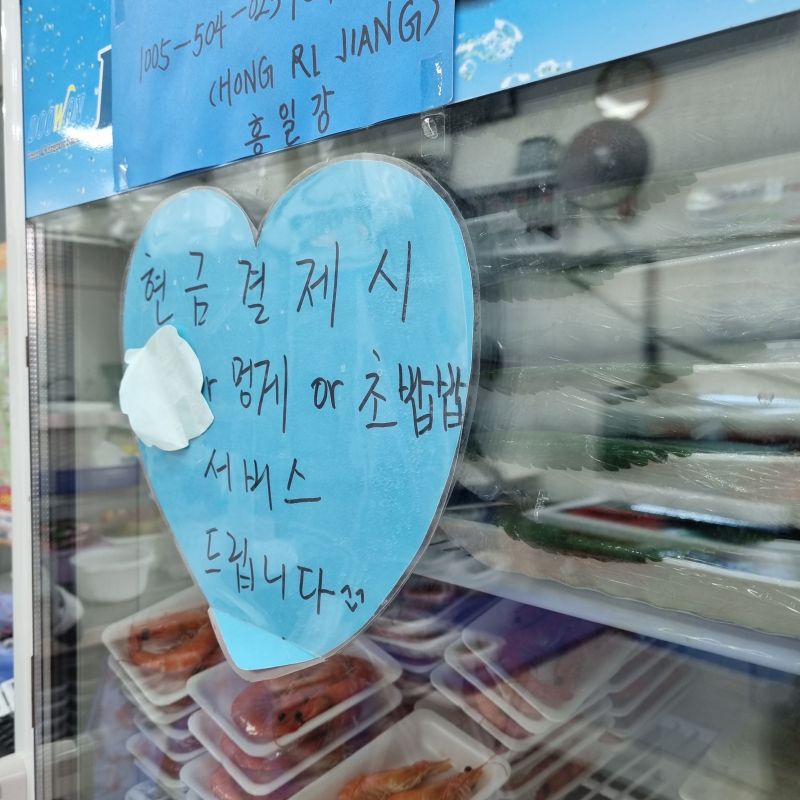 (HONG RI JIANG)
홍일강
현금결제시
멍게 or 초밥밥
서비스
드립니다